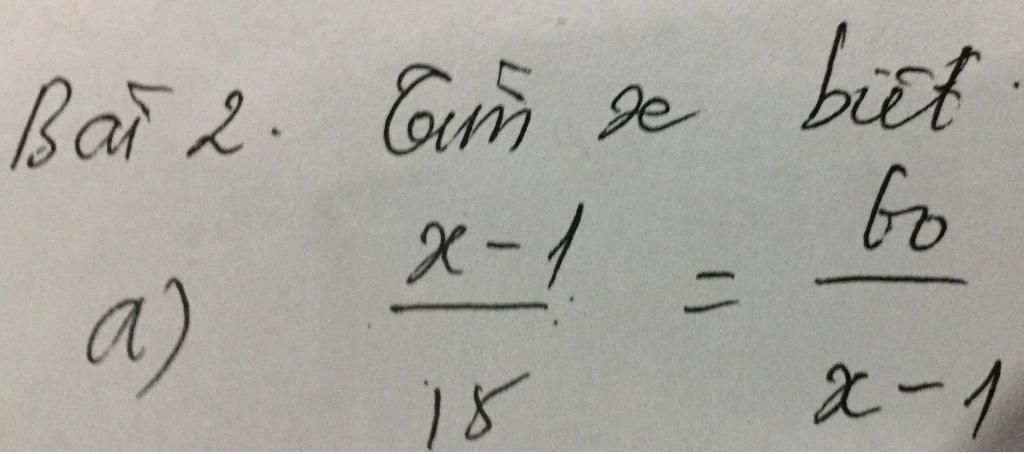 Bài 2. Tìm x biết.
a) \frac{x-1}{15} = \frac{60}{x-1}